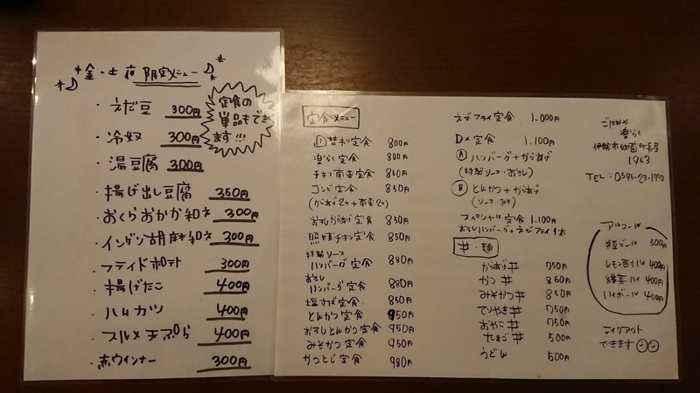 金・土 夜 限定メニュー
・えだ豆 300円
・冷奴 300円
・湯豆腐 300円
・揚げ出し豆腐 350円
・おくらおかか和え 300円
・インゲン胡麻和え 300円
・フライドポテト 300円
・揚げたこ 400円
・ハムカツ 400円
・スルメ天ぷら 400円
・赤ウインナー 300円
定食の
単品もでき
ます!!!
定食メニュー
日替わり定食 800円
楽らく定食 800円
チキン南蛮定食 840円
コンビ定食 850円
(からあげ2ヶ+南蛮2ヶ)
おろしからあげ定食 850円
照り焼チキン定食 850円
特製ソース
ハンバーグ定食 880円
おろし
ハンバーグ定食 880円
塩さば定食 850円
とんかつ定食 950円
おろしとんかつ定食 950円
みそかつ定食 950円
かつとじ定食 980円
エビフライ定食 1,000円
Dx定食 1,100円
Ⓐハンバーグ+からあげ
(特製ソース・おろし)
Ⓑとんかつ+からあげ
(ソース・みそ)
スペシャル定食 1,100円
おろしハンバーグ+エビフライ1本
丼・麺
からあげ丼 750円
かつ丼 850円
みそかつ丼 850円
てりやき丼 750円
おやこ丼 750円
たまご丼 500円
うどん 500円
ごはんや
楽らく
1963
TEL:0596-23-1770
アルコール
瓶ビール 500円
レモン酎ハイ 400円
緑茶ハイ 400円
ハイボール 400円
テイクアウト
できます